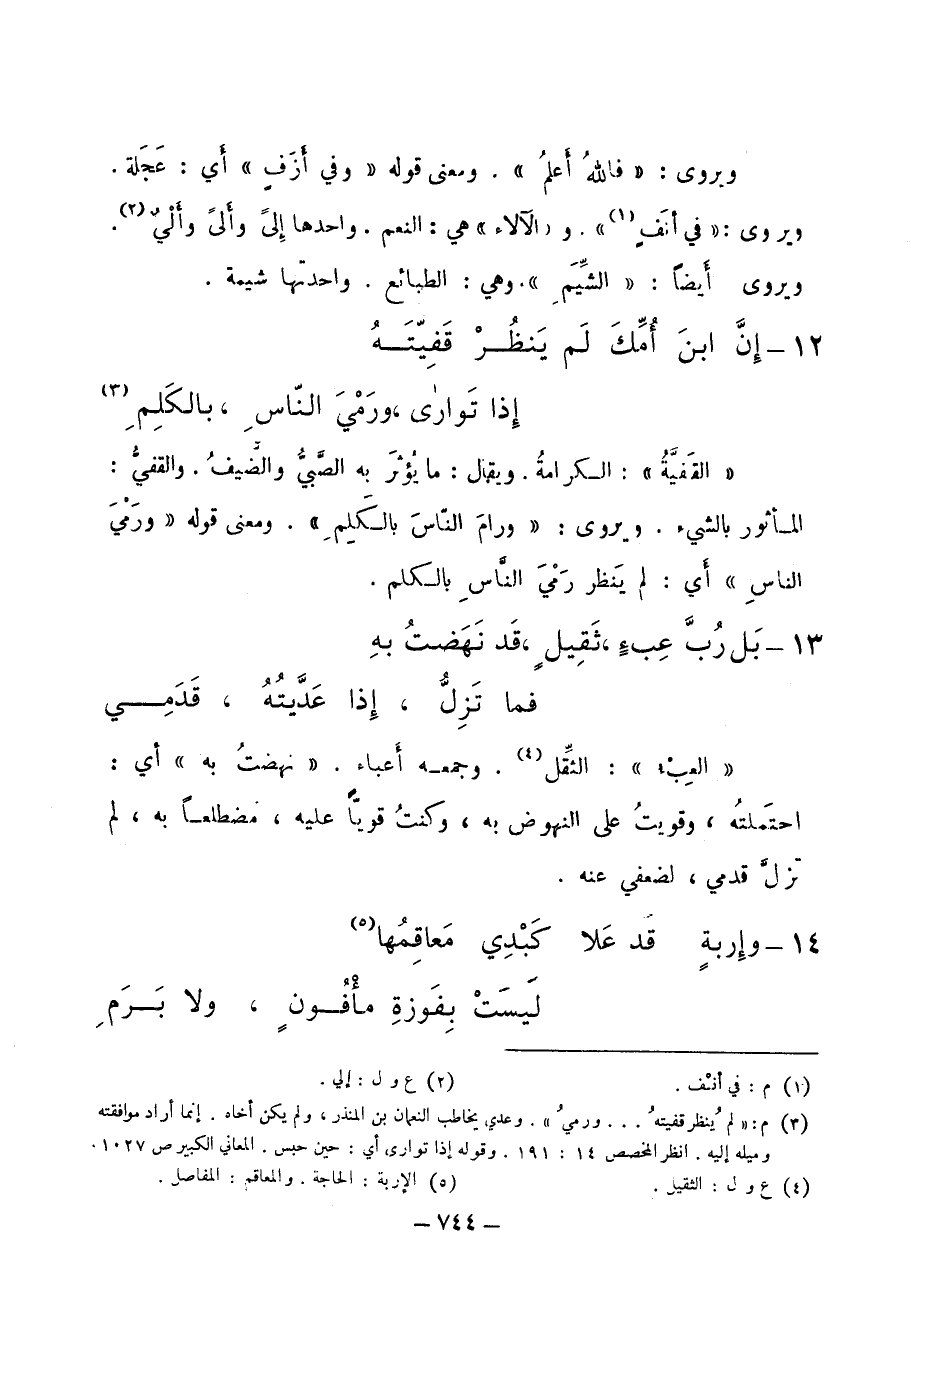 ويروى : « فاللهُ أَعلمُ » . ومعنى قوله « وفي أَزَفٍ » أَي : عَجَلة .
ويروى : « في أَنَفٍ (١) » . و « الآلاء » هي : النعم . واحدها إِلىً وأَلىً وأَلْيٌ (٢) .
ويروى أَيضاً : « الشِّيَمِ » . وهي : الطبائع . واحدتها شيمة .
١٢ – إِنَّ ابنَ أُمِّكَ لَم يَنظُرْ قَفِيَّتَهُ
إِذا تَوارٰى ، ورَمْيَ النّاسِ ، بالكَلِمِ (٣)
« القَفيَّةُ » : الكرامةُ . ويقال : ما يُؤثَرُ به الصَّبيُّ والضَّيفُ . والقفيُّ :
المأثور بالشيء . ويروى : « ورامَ النّاسَ بالكَلِمِ » . ومعنى قوله « ورَمْيَ
الناسِ » أَي : لم يَنظر رَمْيَ النَّاسِ بالكلم .
١٣ – بَل رُبَّ عِبءٍ ، ثَقِيلٍ ، قَد نَهَضتُ بهِ
فما تَزِلُّ ، إِذا عَدَّيتُهُ ، قَدَمِي
« العِبْء » : الثِّقل (٤) . وجمعه أَعباء . « نهضتُ به » أَي :
احتَملتُه ، وقويتُ على النهوض به ، وكنتُ قويّاً عليه ، مضطلعاً به ، لم
تزلَّ قدمي ، لضعفي عنه .
١٤ – وإِربةٍ قَد عَلا كَبْدِي مَعاقِمُها (٥)
لَيسَتْ بِفَوزةِ مأْفُونٍ ، ولا بَرَمِ
(١) م : في أنْف .
(٢) ع و ل : إلي .
(٣) م : « لم يُنظر قفيتهُ . . . ورميُ » . وعدي يخاطب النعمان بن المنذر ، ولم يكن أخاه . إنما أراد موافقته
وميله إليه . انظر المخصص ١٤ : ١٩١ . وقوله إذا توارى أي : حين حبس . المعاني الكبير ص ١٠٢٧ .
(٤) ع و ل : الثقيل .
(٥) الإربة : الحاجة . والمعاقم : المفاصل .
– ٧٤٤ –